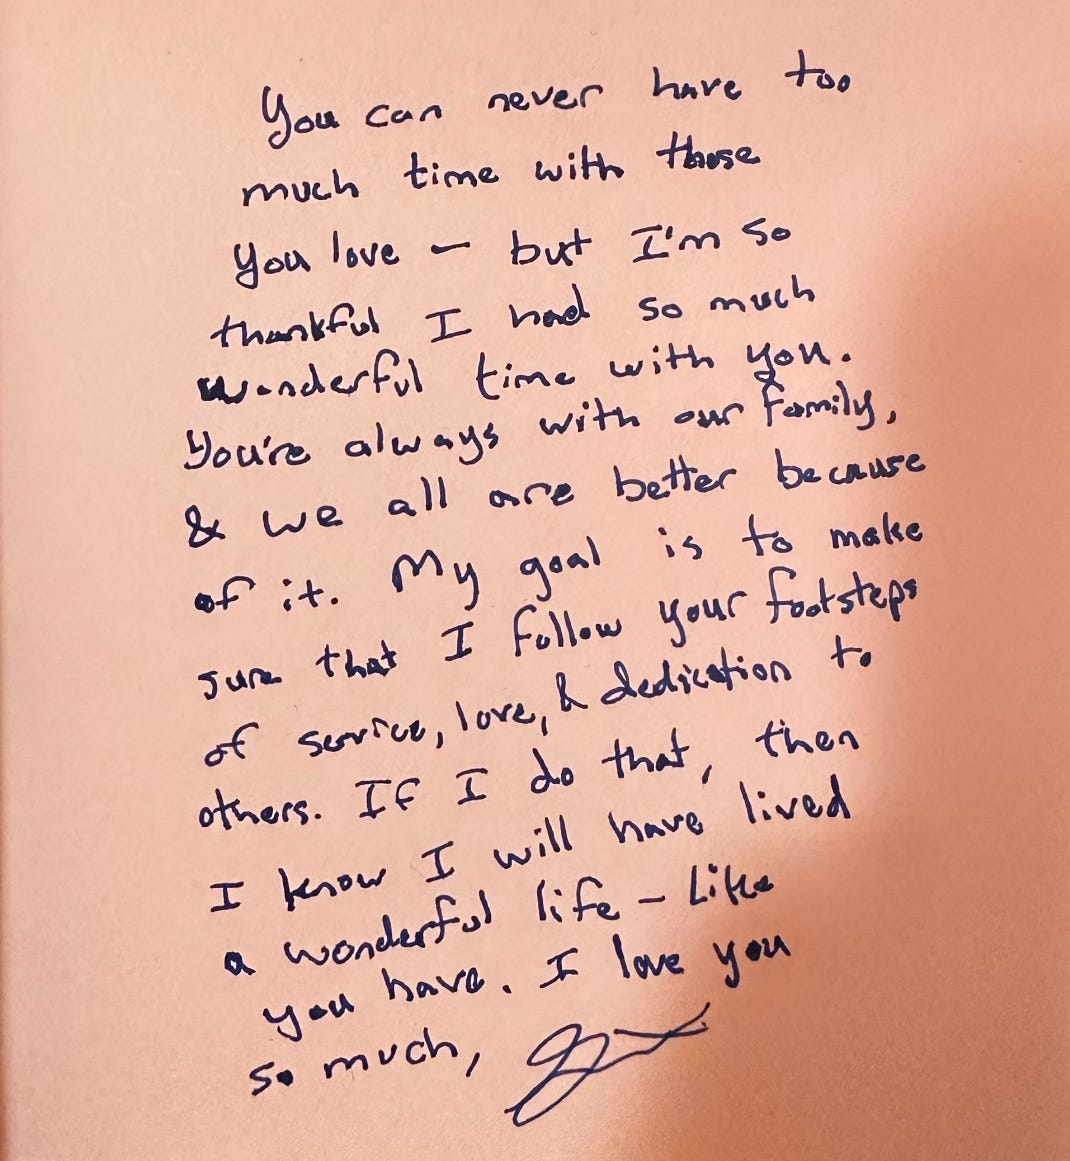 You can never have too
much time with those
you love – but I'm so
thankful I had so much
wonderful time with you.
You're always with our family,
& we all are better because
of it. My goal is to make
sure that I follow your footsteps
of service, love, & dedication to
others. If I do that, then
I know I will have lived
a wonderful life – like
you have. I love you
so much,